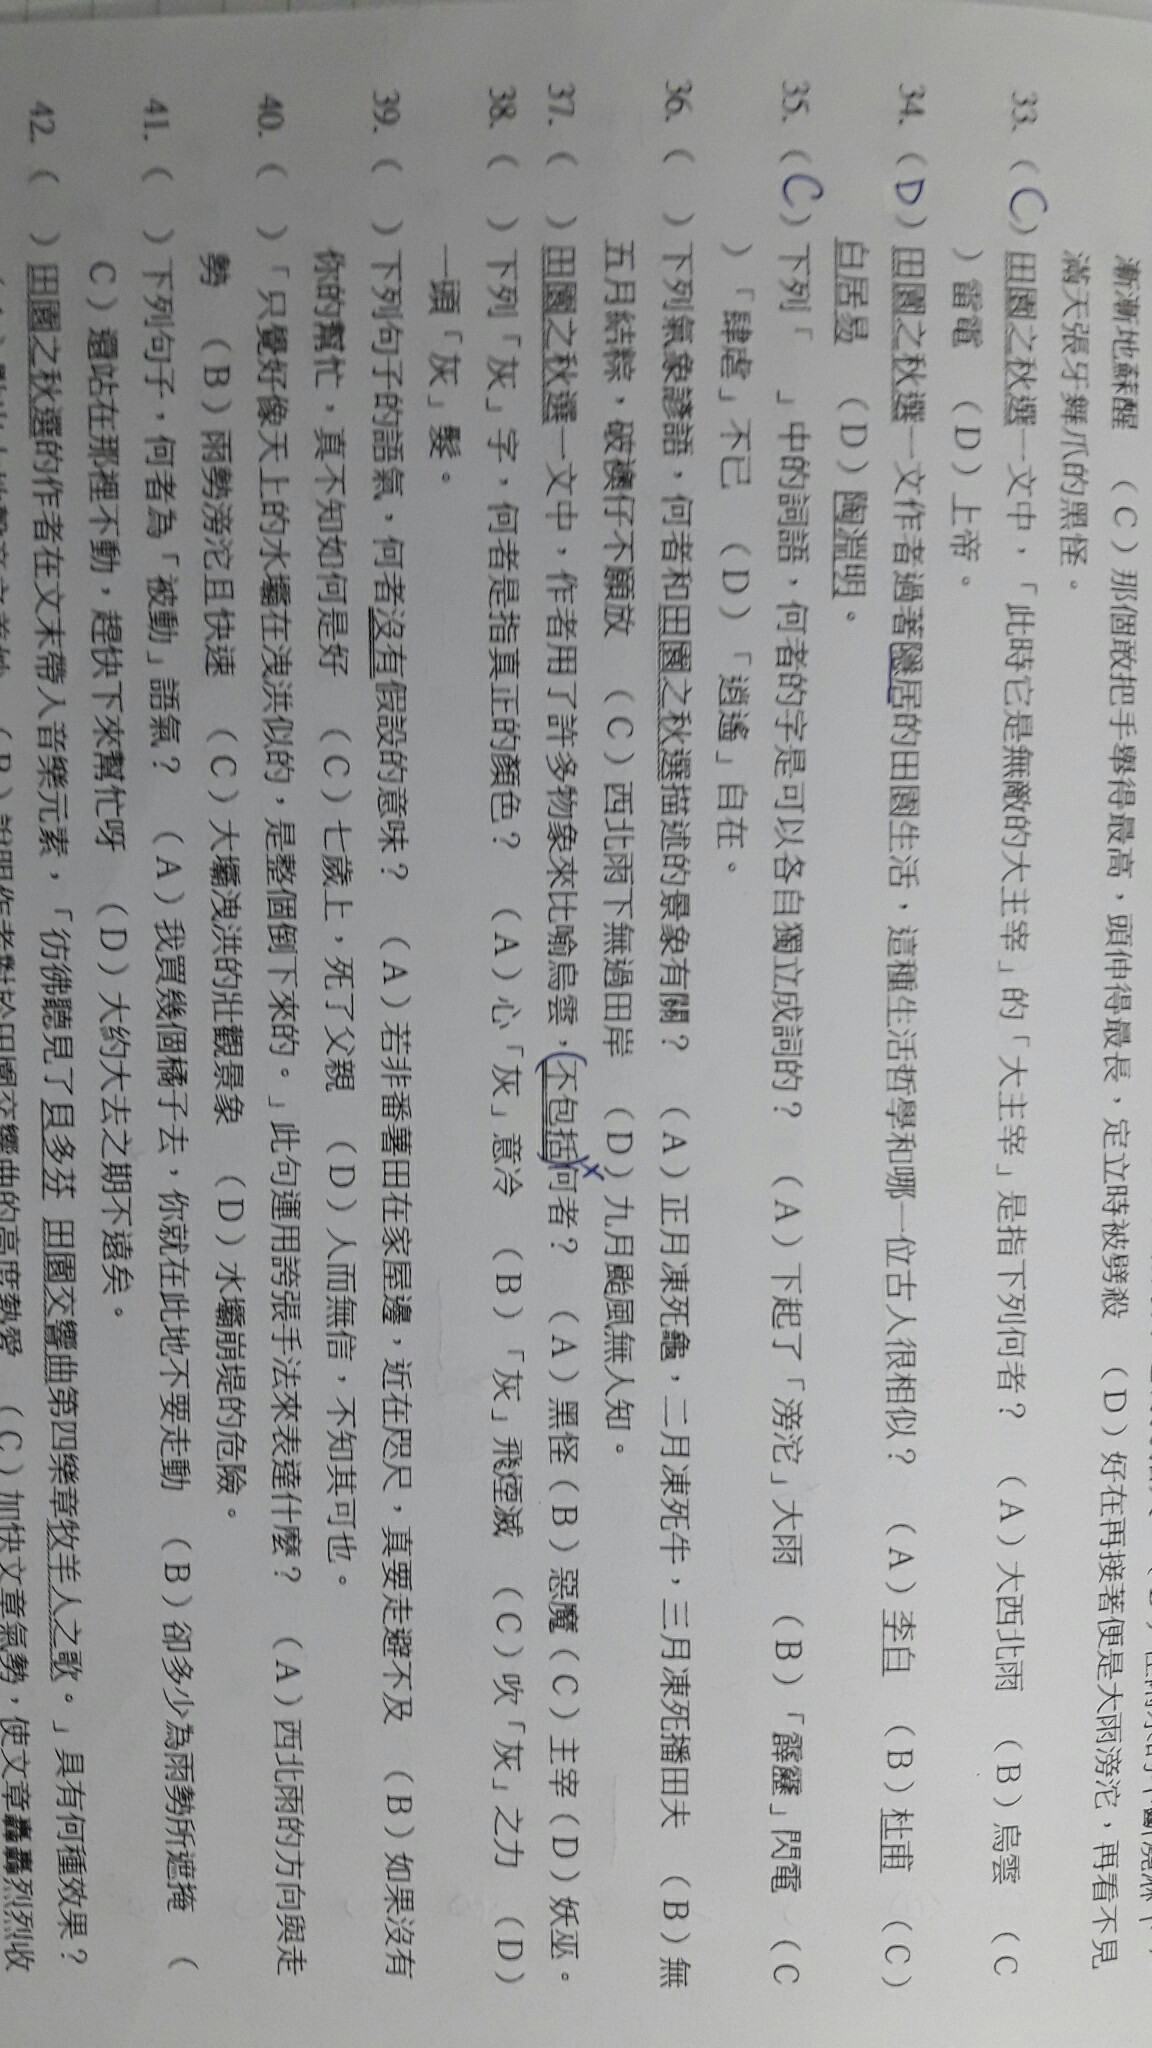 漸漸地蘇醒 （C）那個敢把手舉得最高，頭伸得最長，定立時被劈殺 （D）好在再接著便是大雨滂沱，再看不見
滿天張牙舞爪的黑怪。
33.（C）田園之秋選一文中，「此時它是無敵的大主宰」的「大主宰」是指下列何者？ （A）大西北雨 （B）烏雲 （C
）雷電 （D）上帝。
34.（D）田園之秋選一文作者過著隱居的田園生活，這種生活哲學和哪一位古人很相似？ （A）李白 （B）杜甫 （C）
白居易 （D）陶淵明。
35.（C）下列「 」中的詞語，何者的字是可以各自獨立成詞的？ （A）下起了「滂沱」大雨 （B）「霹靂」閃電 （C
）「肆虐」不已 （D）「逍遙」自在。
36.（ ）下列氣象諺語，何者和田園之秋選描述的景象有關？ （A）正月凍死龜，二月凍死牛，三月凍死播田夫 （B）無
五月結粽，破襖仔不願放 （C）西北雨下無過田岸 （D）九月颱風無人知。
37.（ ）田園之秋選一文中，作者用了許多物象來比喻烏雲，不包括何者？ （A）黑怪（B）惡魔（C）主宰（D）妖巫。
38.（ ）下列「灰」字，何者是指真正的顏色？ （A）心「灰」意冷 （B）「灰」飛煙滅 （C）吹「灰」之力 （D）
一頭「灰」髮。
39.（ ）下列句子的語氣，何者沒有假設的意味？ （A）若非番薯田在家屋邊，近在咫尺，真要走避不及 （B）如果沒有
你的幫忙，真不知如何是好 （C）七歲上，死了父親 （D）人而無信，不知其可也。
40.（ ）「只覺好像天上的水壩在洩洪似的，是整個倒下來的。」此句運用誇張手法來表達什麼？ （A）西北雨的方向與走
勢 （B）雨勢滂沱且快速 （C）大壩洩洪的壯觀景象 （D）水壩崩堤的危險。
41.（ ）下列句子，何者為「被動」語氣？ （A）我買幾個橘子去，你就在此地不要走動 （B）卻多少為雨勢所遮掩 （
C）還站在那裡不動，趕快下來幫忙呀 （D）大約大去之期不遠矣。
42.（ ）田園之秋選的作者在文末帶入音樂元素，「彷彿聽見了貝多芬 田園交響曲第四樂章牧羊人之歌。」具有何種效果？
（B）說明作者對於田園交響曲的高度熱愛 （C）加快文章氣勢，使文章轟轟烈烈收